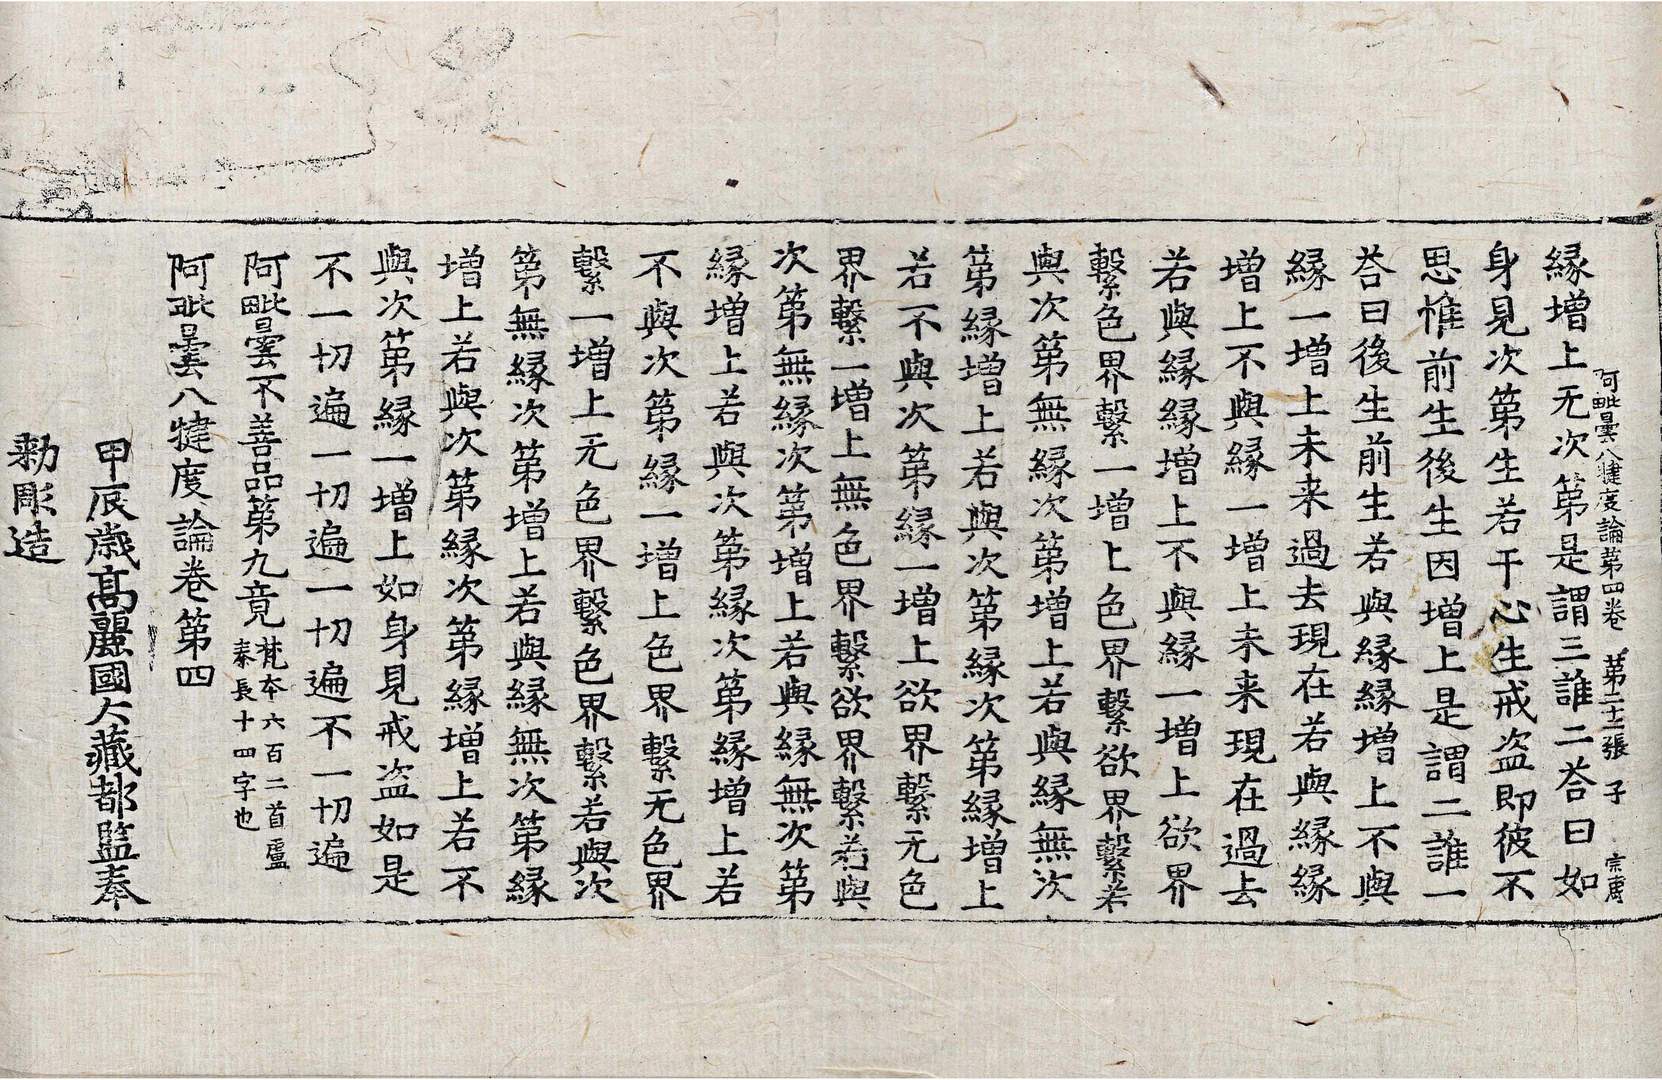 阿毗曇八犍度論第四卷　第二十二張　子　宗庸
緣增上无次第是謂三誰二荅曰如
身見次第生若干心生戒盜即彼不
思惟前生後生因增上是謂二誰一
荅曰後生前生若與緣緣增上不與
緣一增上未来過去現在若與緣緣
增上不與緣一增上未来現在過去
若與緣緣增上不與緣一增上欲界
繫色界繫一增上色界繫欲界繫若
與次第無緣次第增上若與緣無次
第緣增上若與次第緣次第緣增上
若不與次第緣一增上欲界繫无色
界繫一增上無色界繫欲界繫若與
次第無緣次第增上若與緣無次第
緣增上若與次第緣次第緣增上若
不與次第緣一增上色界繫无色界
繫一增上无色界繫色界繫若與次
第無緣次第增上若與緣無次第緣
增上若與次第緣次第緣增上若不
與次第緣一增上如身見戒盜如是
不一切遍一切遍一切遍不一切遍
阿毗曇不善品第九竟梵本六百二首盧
秦長十四字也
阿毗曇八犍度論卷第四
甲辰歲高麗國大藏都監奉
勅彫造